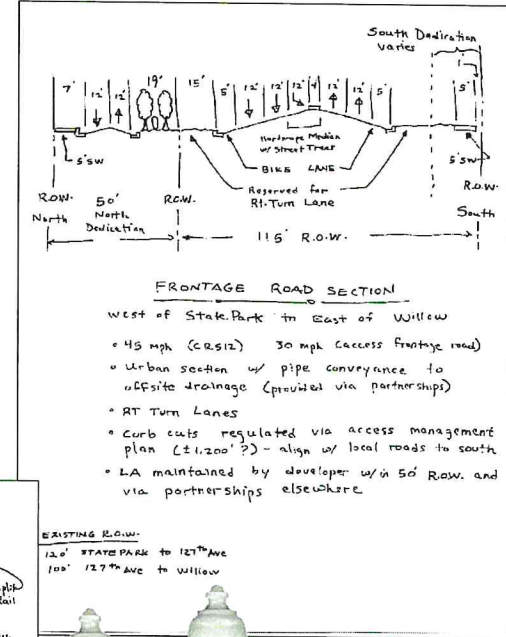 South Dedication
varies
7' 12' 12' 19' 15' 5' 12' 12' 12' 4' 12' 12' 5' 1' 5'
Hardscape Median
w/ Street Trees
BIKE LANE
Reserved for
Rt. Turn Lane
5' SW
5' SW
R.O.W.
North
50'
North
Dedication
R.O.W.
115' R.O.W.
R.O.W.
South
FRONTAGE ROAD SECTION
West of State Park to East of Willow
• 45 mph (CR512) 30 mph (access frontage road)
• Urban section w/ pipe conveyance to
offsite drainage (provided via partnerships)
• RT Turn Lanes
• Curb cuts regulated via access management
plan (±1,200'?) - align w/ local roads to south
• LA maintained by developer w/in 50' R.O.W. and
via partnerships elsewhere
EXISTING R.O.W.
120' STATE PARK to 127th Ave
100' 127th Ave to Willow